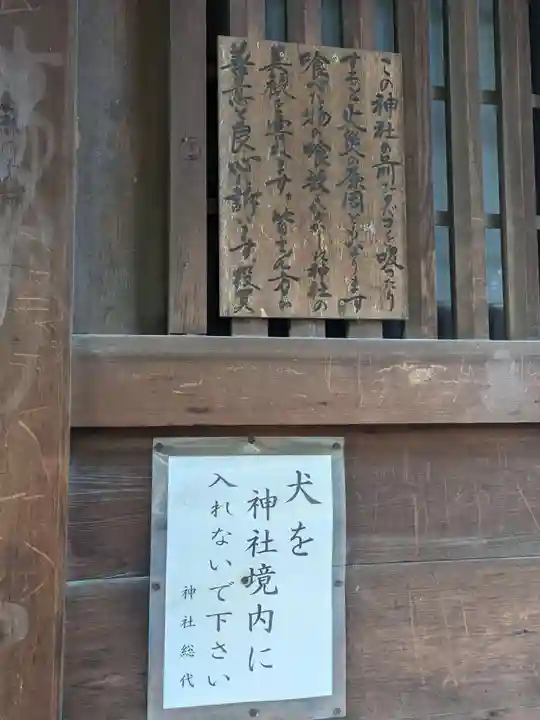 この神社の前でタバコを吸ったり
すると火災の原因となります
喰べた物の喰散らかしは神社の
美観を害します。皆さん方の
善意と良心に訴えます
犬を
神社境内に
入れないで下さい
神社総代